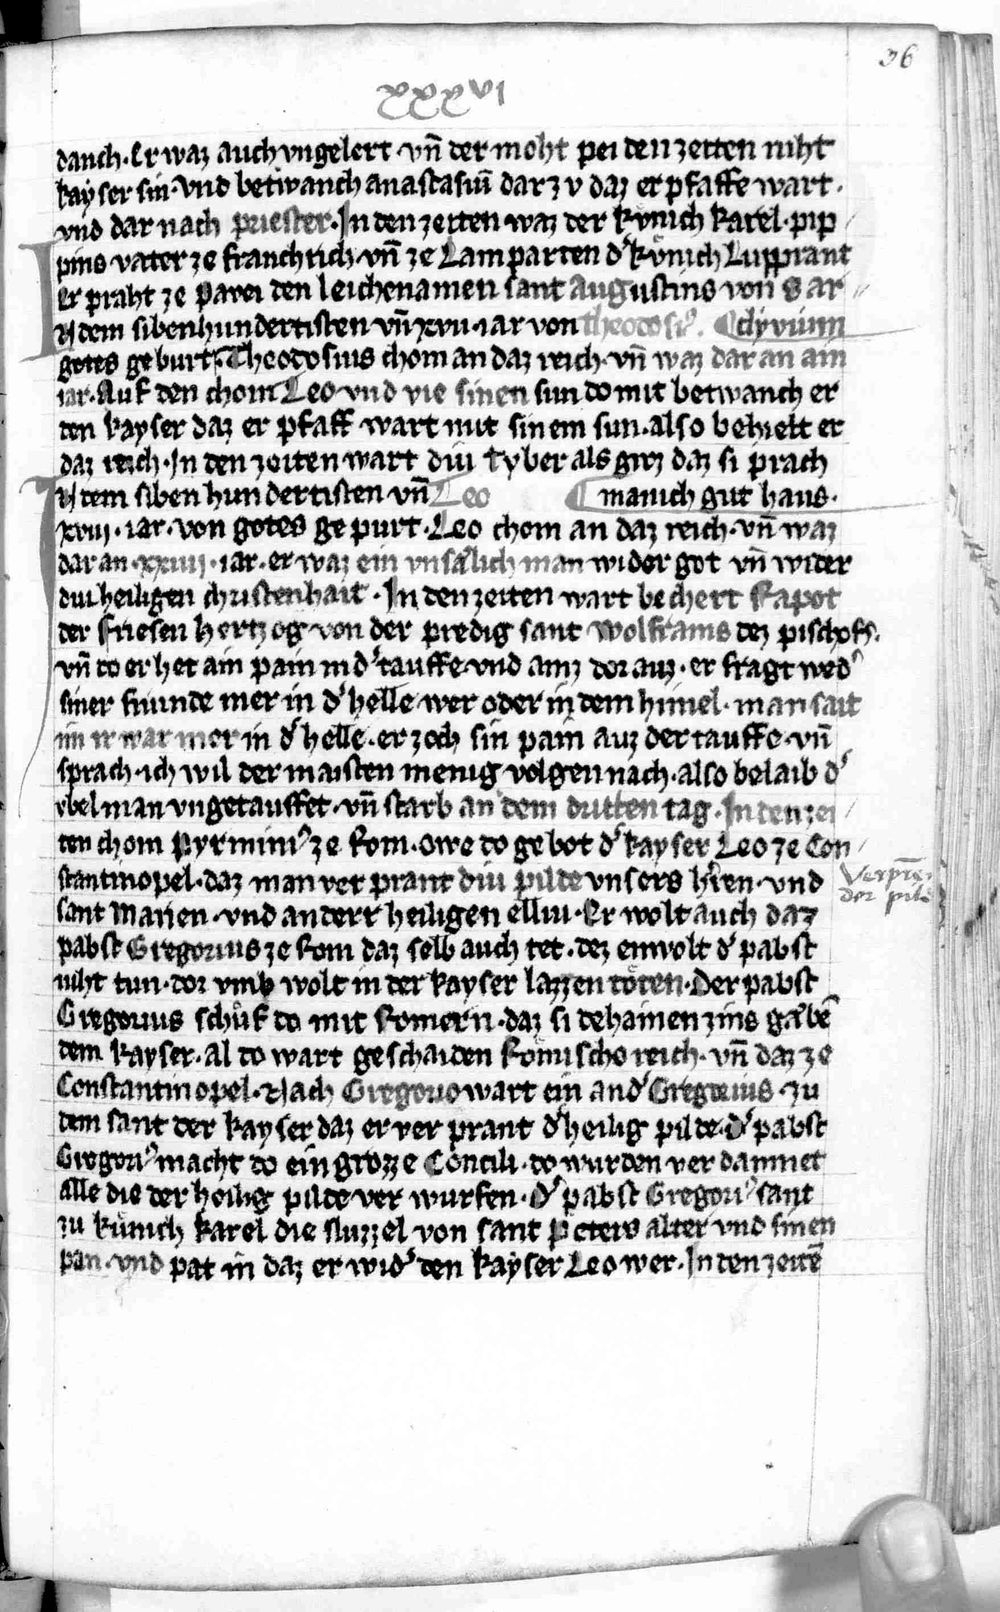 36
xxxvi
danch · Er waz auch vngelert · vn̄ der moht pei den zeiten niht
kayser sin · vnd betwanch anastasiū dar zv daz er pfaffe wart ·
vnd dar nach priester · In den zeiten waz der kv̊nich karel · pip
pins vater ze franchrich vn̄ ze Lamparten d' kv̊nich Lupprant
er praht ze Parei den leichenamen sant Augustins von Sar
In dem sibenhundertisten vn̄ xvii · iar von Theodosi9 . ¶ dyvium
gotes geburt · Theodosius chom an daz reich · vn̄ waz dar an ain
iar · Auf den chom Leo · vnd vie sinen sun do mit betwanch er
den kayser daz er pfaff wart mit sinem sun · also behielt er
daz reich · In den zeiten wart diu Tyber als groz daz si prach
In dem siben hundertisten vn̄ Leo ¶ manich gut haus ·
xviii · iar · von gotes gepurt · Leo chom an daz reich · vn̄ waz
dar an · xxiiii · iar · er waz ein vnsålich man wider got vn̄ wider
diu heiligen christenhait · In den zeiten wart bechert Rapot
der friesen hertzog von der predig sant Wolframs dez pischofs ·
vn̄ do er het ain pain in d' tauffe · vnd ainz dor auz · er fragt wed'
siner friunde mer in d' helle wer oder in dem himel · man sait
im ir war mer in d' helle · er zoch sin pain auz der tauffe · vn̄
sprach · ich wil der maisten menig volgen nach · also belaib d'
vbel man vngetauffet · vn̄ starb an dem dritten tag · In den zei
ten chom Pyrmini9 ze Rom · Owe do gebot d' kayser Leo ze Con
stantinopel · daz man verprant diu pilde vnsers h'ren · vnd
sant Marien · vnd anderr heiligen elliu · Er wolt auch daz
pabst Gregorius ze Rom daz selb auch tet · dez enwolt d' pabst
niht tun · dor vmb wolt in der kayser lazzen töten · Der pabst
Gregorius schůf do mit Romern · daz si dehainen zins gåbē
dem kayser · Al do wart geschaiden Römischo reich · vn̄ daz ze
Constantinopel · Nach Gregorio wart ein and' Gregorius · zu
dem sant der kayser daz er verprant d' heilig pilde · D' pabst
Gregori9 macht do ein grozze Concili · do wurden verdamnet
alle die der heilig pilde verwurfen · D' pabst Gregori9 sant
zu kůnich karel die sluzzel von sant Peters alter vnd sinen
pan · vnd pat in daz er wid' den kayser Leo wer · In den zeitē
der pild